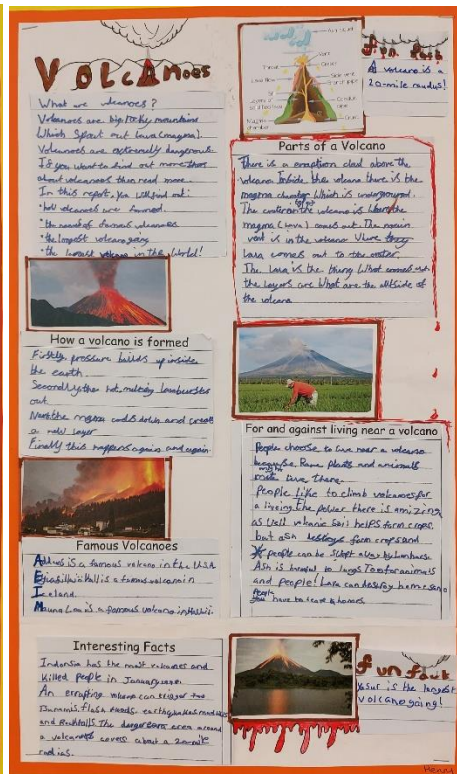 Volcanoes
What are volcanoes?
Volcanoes are big Rocky mountains
Which Spout out lava (magma).
Volcanoes are extremely dangerous.
If you want to find out more
about volcanoes then read more.
In this report, you will find out:
• how volcanoes are formed.
• the names of famous volcanoes
• the longest volcano
• the largest volcano in the World!
How a volcano is formed
Firstly, pressure builds up inside
the earth.
Secondly the hot, melting lava bursts
out
Next the magma cools down and creats
a new layer
Finally this happens again and again
Famous Volcanoes
Addams is a famous volcano in the U.S.A
is a famous volcano in
Iceland.
Mauna Loa is a famous volcano in
Interesting Facts
Indonsia has the most volcanoes and
killed people in January
An errupting volcano can trigger
flash floods, earthquakes, mudslides
and Rockfalls. The danger area around
a volcano covers about a 20-mile
radius.
Vent
Crater
Side vent
Throat
Lava flow
Sill
Conduit
Magma
chamber
Fun fact
A volcano is a
20-mile radius!
Parts of a Volcano
There is a eruption cloud above the
volcano. Inside the volcano there is the
magma chamber Which is underground.
The of the volcano is Where the
magma (lava) comes out. The main
vent is in the volcano Where they
Lava comes out to the
The lava is the thing What comes out
the layers are What are the outside of
the volcano
For and against living near a volcano
People choose to live near a volcano
because, Rare plants and animals
might live there.
People Like to climb volcanoes for
a living. The power there is amizing
as well volcanic Soil helps farm crops.
but ash destroys farm crops and
people can be swept away by
Ash is harmful to lungs Too for animals
and people! Lava can destroy homes so
people have to leave
Fun fact
Yasur is the longest
volcano going!
Henry